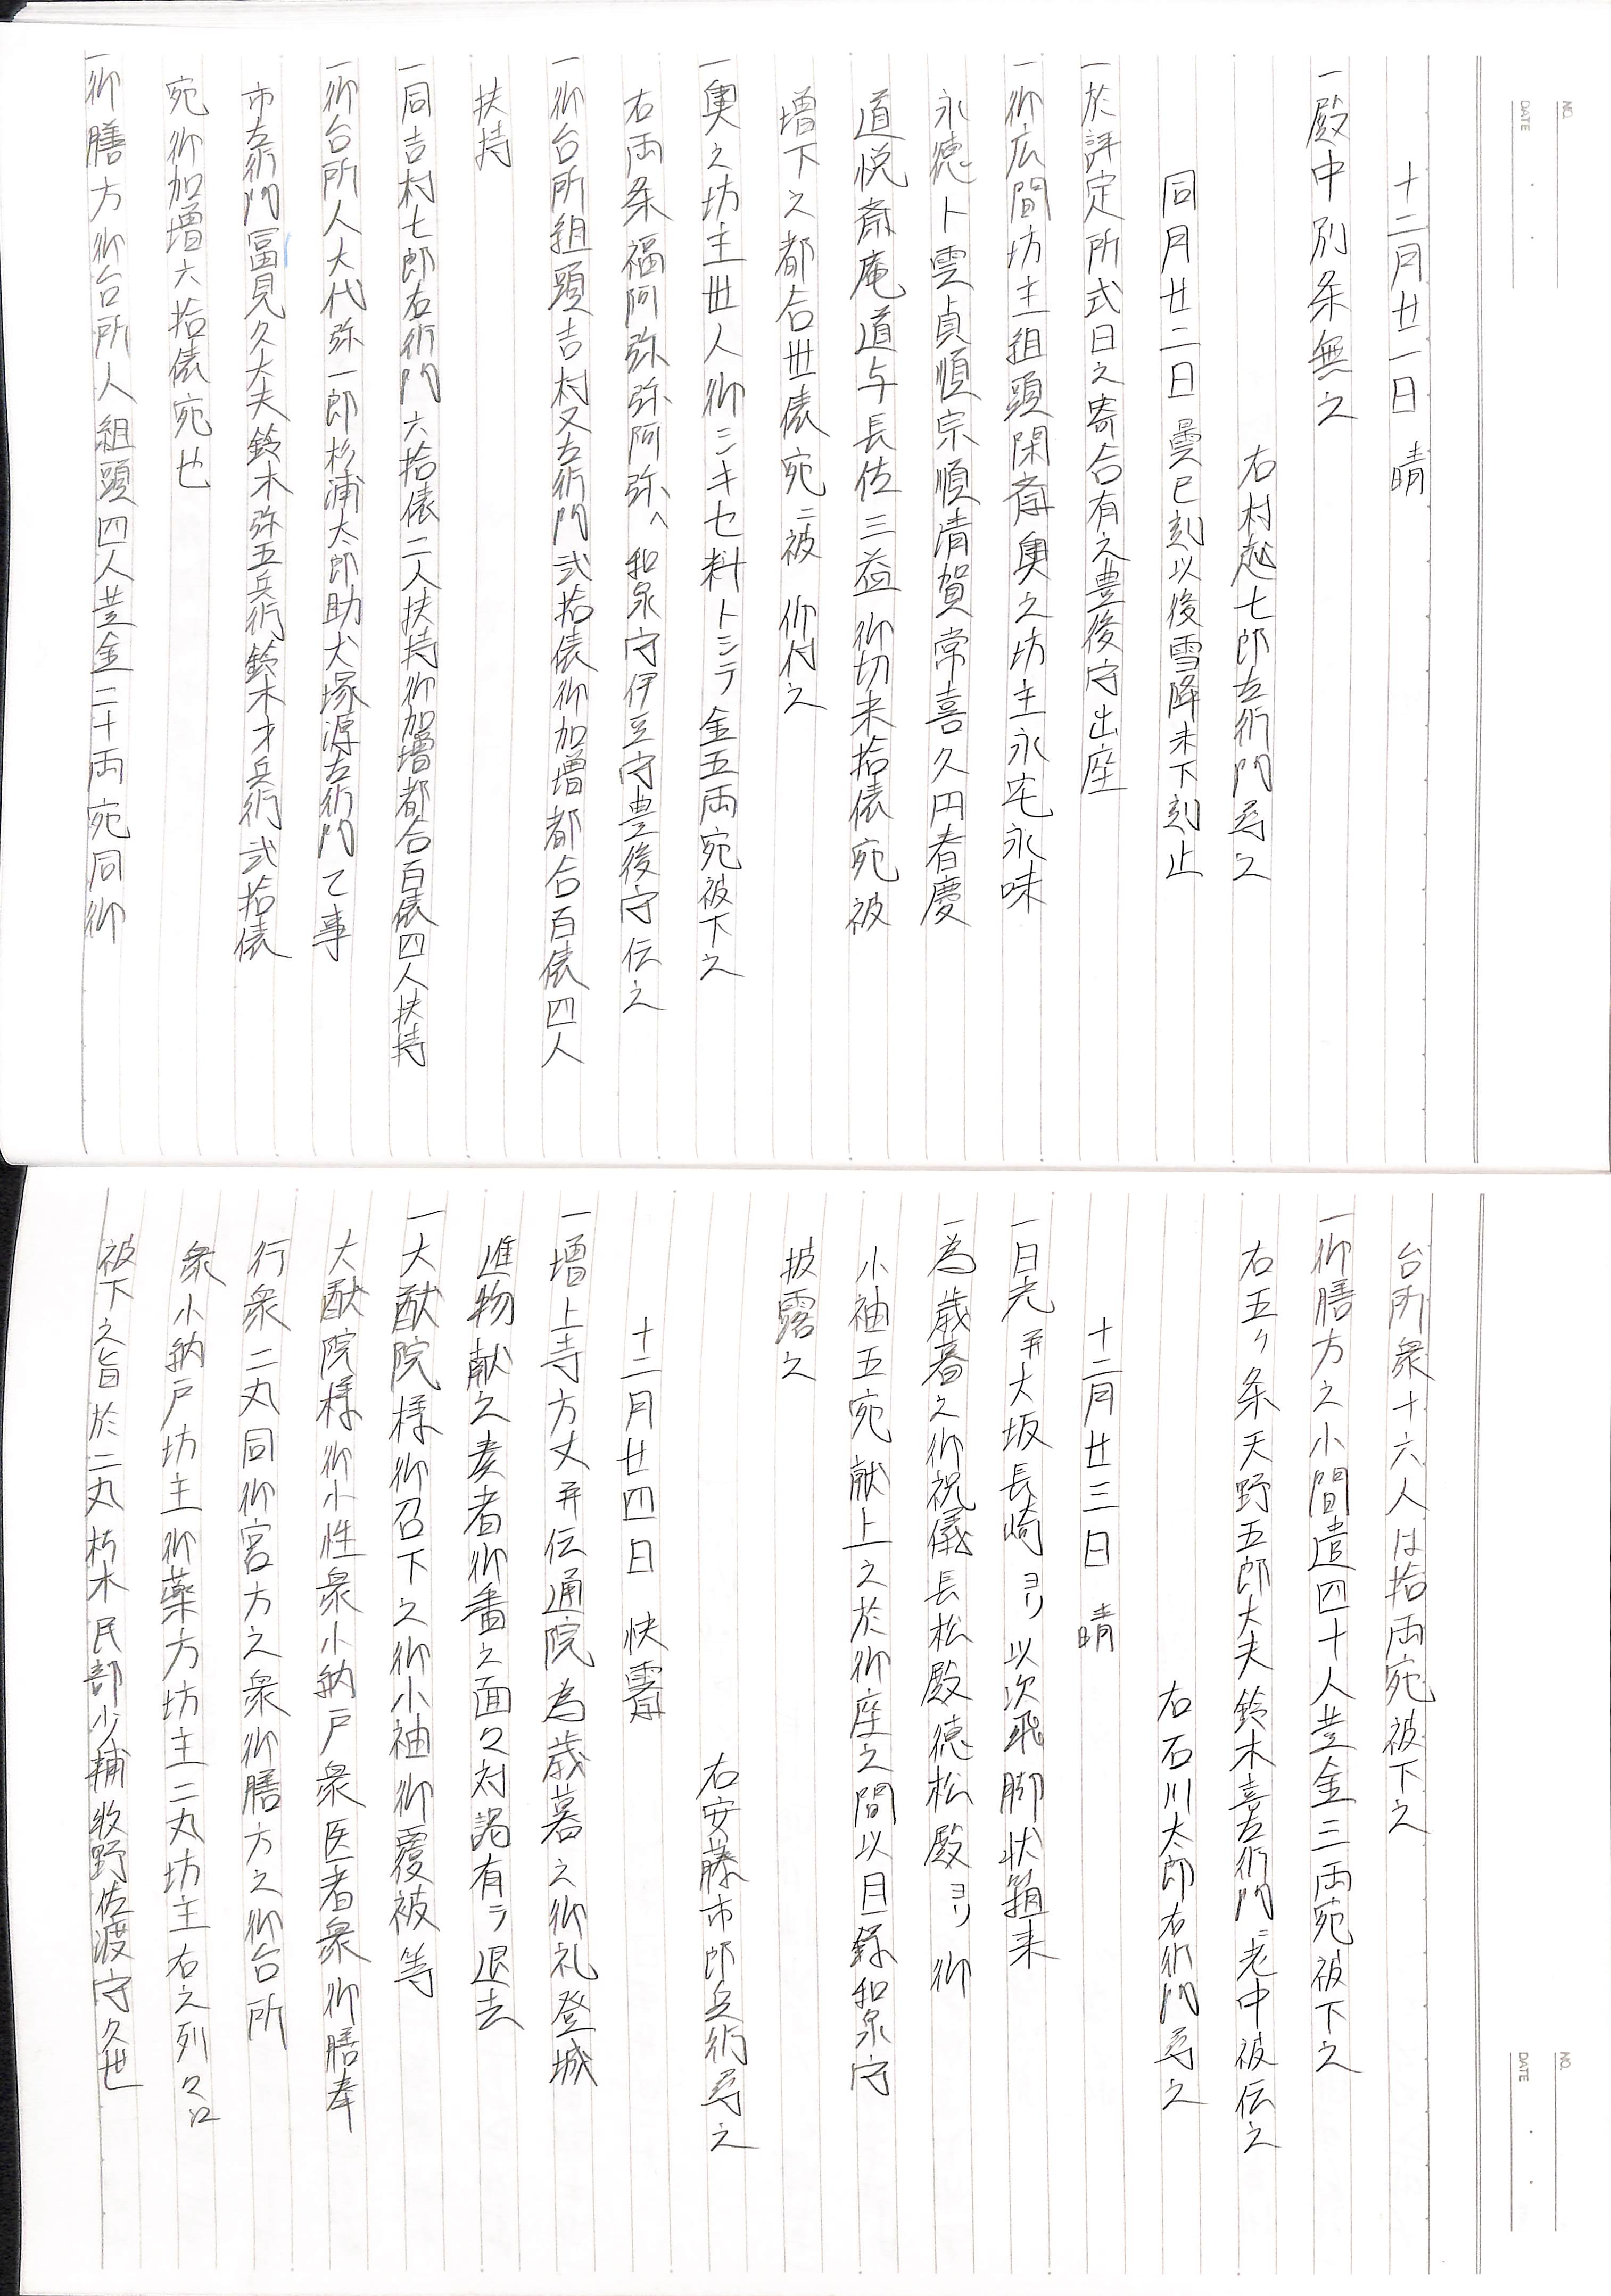 NO.
DATE
十二月廿一日　晴
一殿中別条無之
右村越七郎左衛門尋之
同月廿二日　曇巳刻以後雪降未下刻止
一於評定所式日之寄合有之豊後守出座
一御広間坊主組頭閑斎奥之坊主永宅永味
永徳ト雲貞順宗順清賀常喜久円春慶
道悦斎庵道与長佐三益御切米拾俵宛被
増下之都合卅俵宛ニ被　仰付之
一奥之坊主卅人御シキセ料トシテ金五両宛被下之
右両条福阿弥弥阿弥へ和泉守伊豆守豊後守伝之
一御台所組頭吉村又左衛門弐拾俵御加増都合百俵四人
扶持
一同吉村七郎右衛門六拾俵二人扶持御加増都合百俵四人扶持
一御台所人大代弥一郎杉浦太郎助犬塚源左衛門乙事
市左衛門冨見久大夫鈴木弥五兵衛鈴木才兵衛弐拾俵
宛御加増六拾俵宛也
一御膳方御台所人組頭四人并金二十両宛同御
NO.
DATE
台所衆十六人は拾両宛被下之
一御膳方之小間遣四十人并金三両宛被下之
右五ケ条天野五郎大夫鈴木喜左衛門ニ老中被伝之
右石川太郎右衛門尋之
十二月廿三日　晴
一日光并大坂長崎ヨリ以次飛脚状箱来
一為歳暮之御祝儀長松殿徳松殿ヨリ御
小袖五宛献上之於御座之間以目録和泉守
披露之
右安藤市郎兵衛尋之
十二月廿四日　快霽
一増上寺方丈并伝通院為歳暮之御礼登城
進物献之奏者御番之面々対謁有テ退去
一大猷院様御召下之御小袖御覆被等
大猷院様御小性衆小納戸衆医者衆御膳奉
行衆二丸同御宮方之衆御膳方之御台所
衆小納戸坊主御薬方坊主二丸坊主右之列々江
被下之旨於二丸朽木民部少輔牧野佐渡守久世